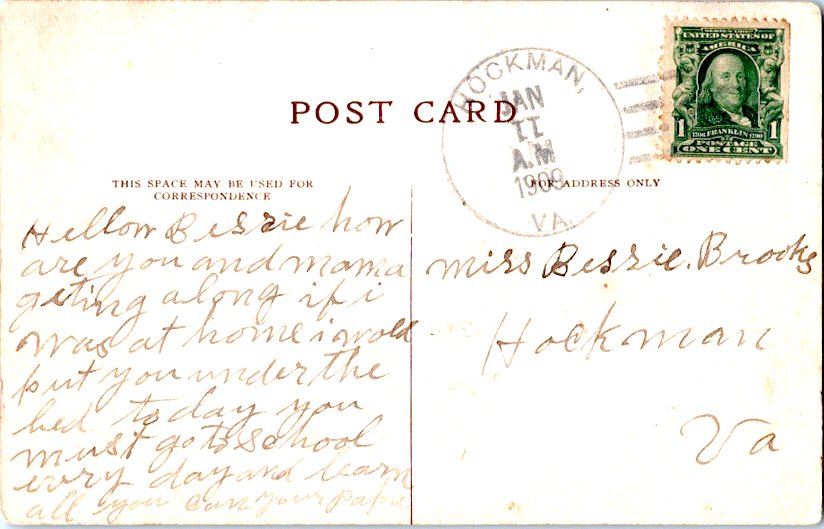 HOCKMAN,
JAN
11
A.M
1909
VA.
SERIES 1902
UNITED STATES OF
AMERICA
1 1706 FRANKLIN 1790 1
POSTAGE
ONE CENT
POST CARD
THIS SPACE MAY BE USED FOR
CORRESPONDENCE
FOR ADDRESS ONLY
Hellow Bessie how
are you and mama
geting along if i
was at home i wold
put you under the
bed today you
must go to School
evry day and learn
all you can your papa
Miss Bessie. Brooks
Hockman
Va